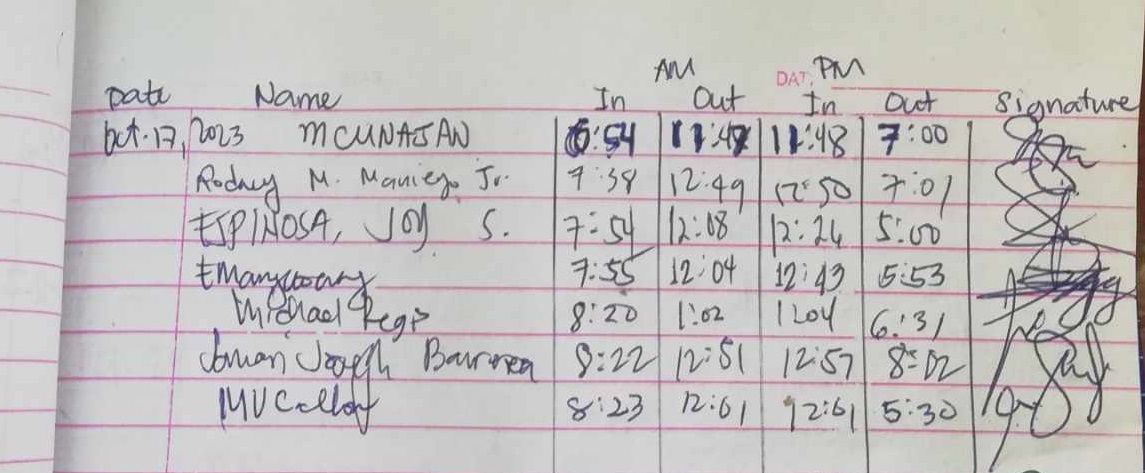 AM DAT. PM
Date Name In Out In Out Signature
Oct. 17, 2023 MCUNAJAN 6:54 11:47 11:48 7:00
Rodney M. Maniego Jr. 7:38 12:49 12:50 7:01
ESPINOSA, JOY S. 7:54 12:08 12:26 5:00
7:55 12:04 12:43 5:53
Michael Regis 8:20 1:02 1:04 6:31
Joseph 8:22 12:51 12:57 8:02
8:23 12:01 12:01 5:30